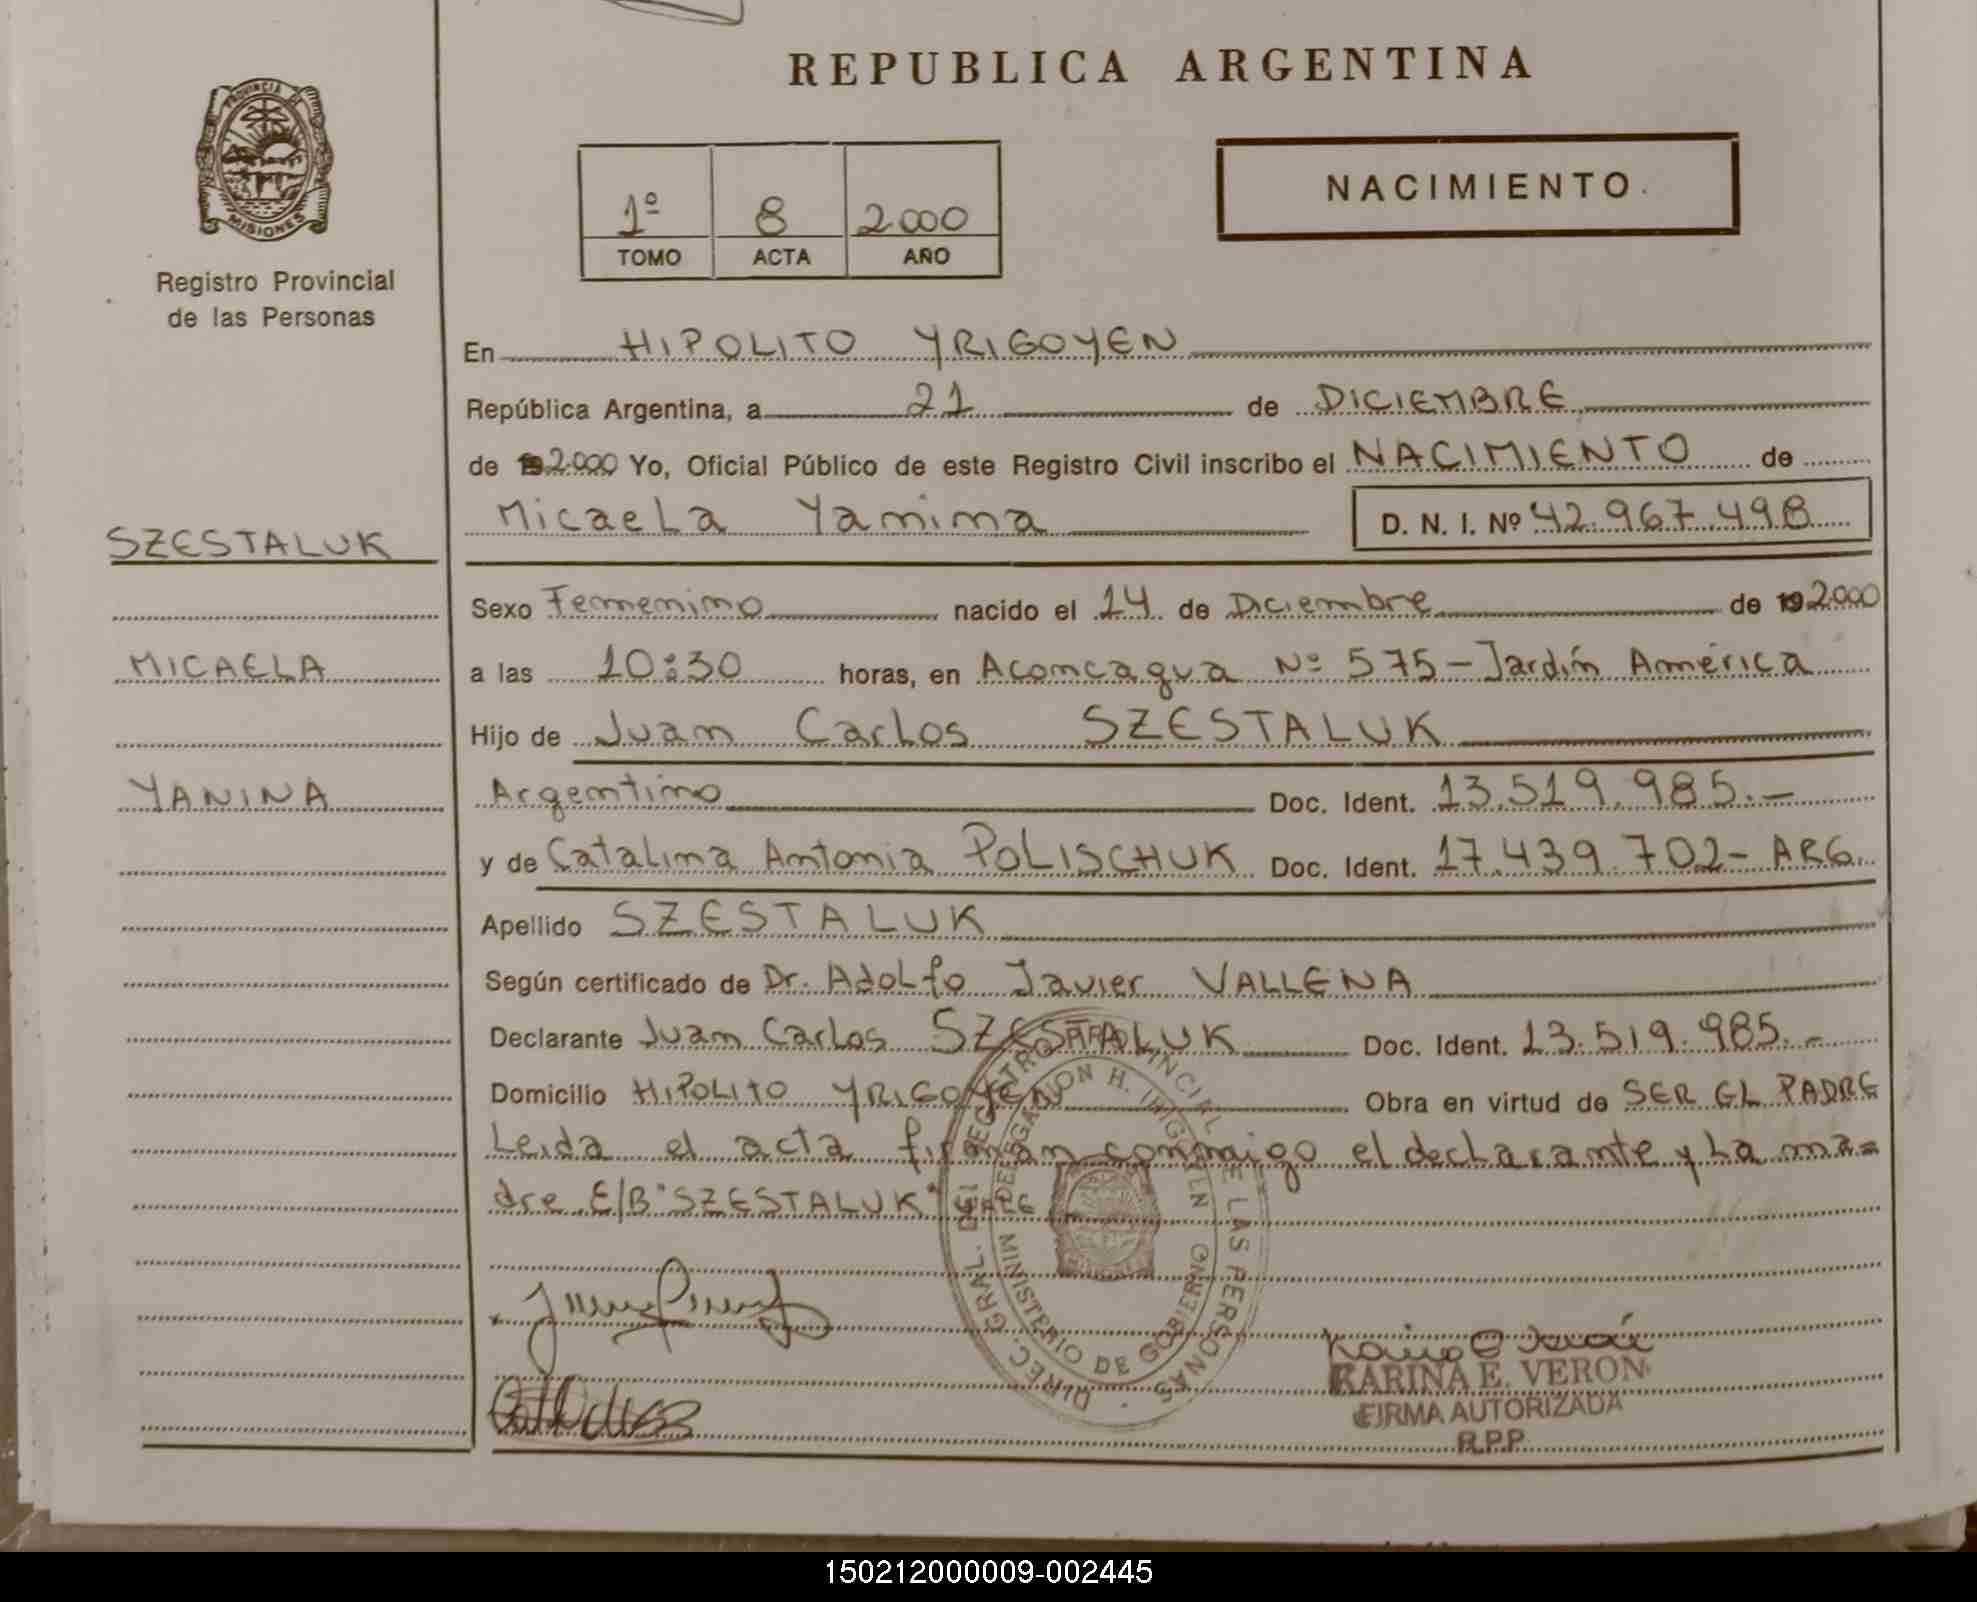 PROVINCIA DE
MISIONES
Registro Provincial
de las Personas
SZESTALUK
MICAELA
YANINA
REPUBLICA ARGENTINA
1º 8 2.000
TOMO ACTA AÑO
NACIMIENTO
En HIPOLITO YRIGOYEN
República Argentina, a 21 de DICIEMBRE
de 192.000 Yo, Oficial Público de este Registro Civil inscribo el NACIMIENTO de
Micaela Yanina D. N. I. Nº 42.967.498
Sexo Femenino nacido el 14 de Diciembre de 192.000
a las 10:30 horas, en Aconcagua Nº 575 - Jardín América
Hijo de Juan Carlos SZESTALUK
Argentino Doc. Ident. 13.519.985.-
y de Catalina Antonia POLISCHUK Doc. Ident. 17.439.702- ARG.
Apellido SZESTALUK
Según certificado de Dr. Adolfo Javier VALLENA
Declarante Juan Carlos SZESTALUK Doc. Ident. 13.519.985.-
Domicilio HIPOLITO YRIGOYEN Obra en virtud de SER EL PADRE
Leida el acta firman conmigo el declarante y la ma=
dre E/B "SZESTALUK" VALE
DIREC. GRAL. DEL REGISTRO PROVINCIAL DE LAS PERSONAS
MINISTERIO DE GOBIERNO
KARINA E. VERON
FIRMA AUTORIZADA
R.P.P.
150212000009-002445